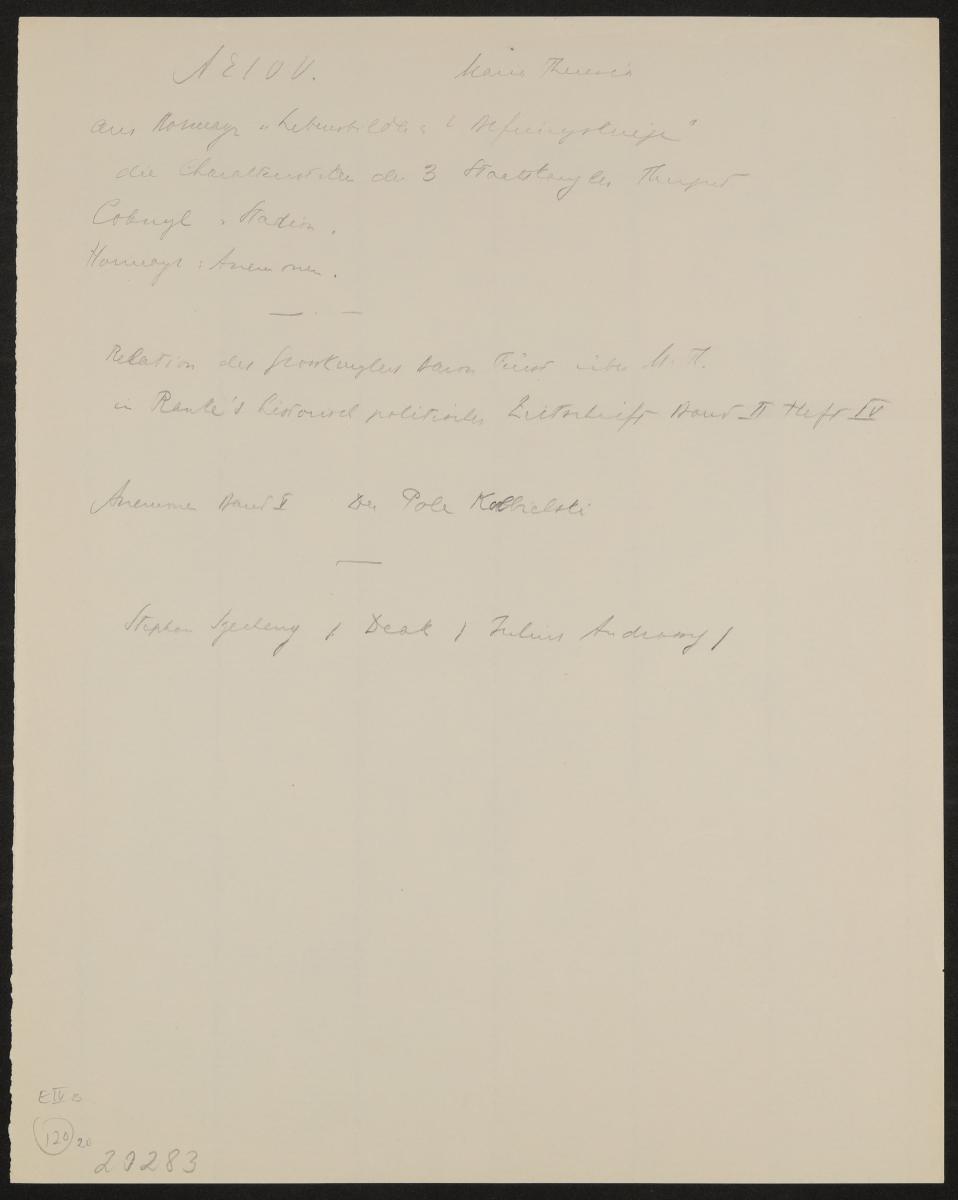 A E I O U. Maria Theresia
aus Hormayr „Lebensbilder a d Befreiungskriege"
die Charakteristiken der 3 Staatskanzler Thugut
Cobenzl, Stadion.
Hormayr: Anemonen.
Relation des Grosskanzlers Baron Fürst über M. Th.
in Ranke's historisch politischer Zeitschrift Band II Heft IV
Anemonen Band I Der Pole Kolbielski
Stephan Szecheny / Deak / Julius Andrassy /
E IV B
120 20
20283